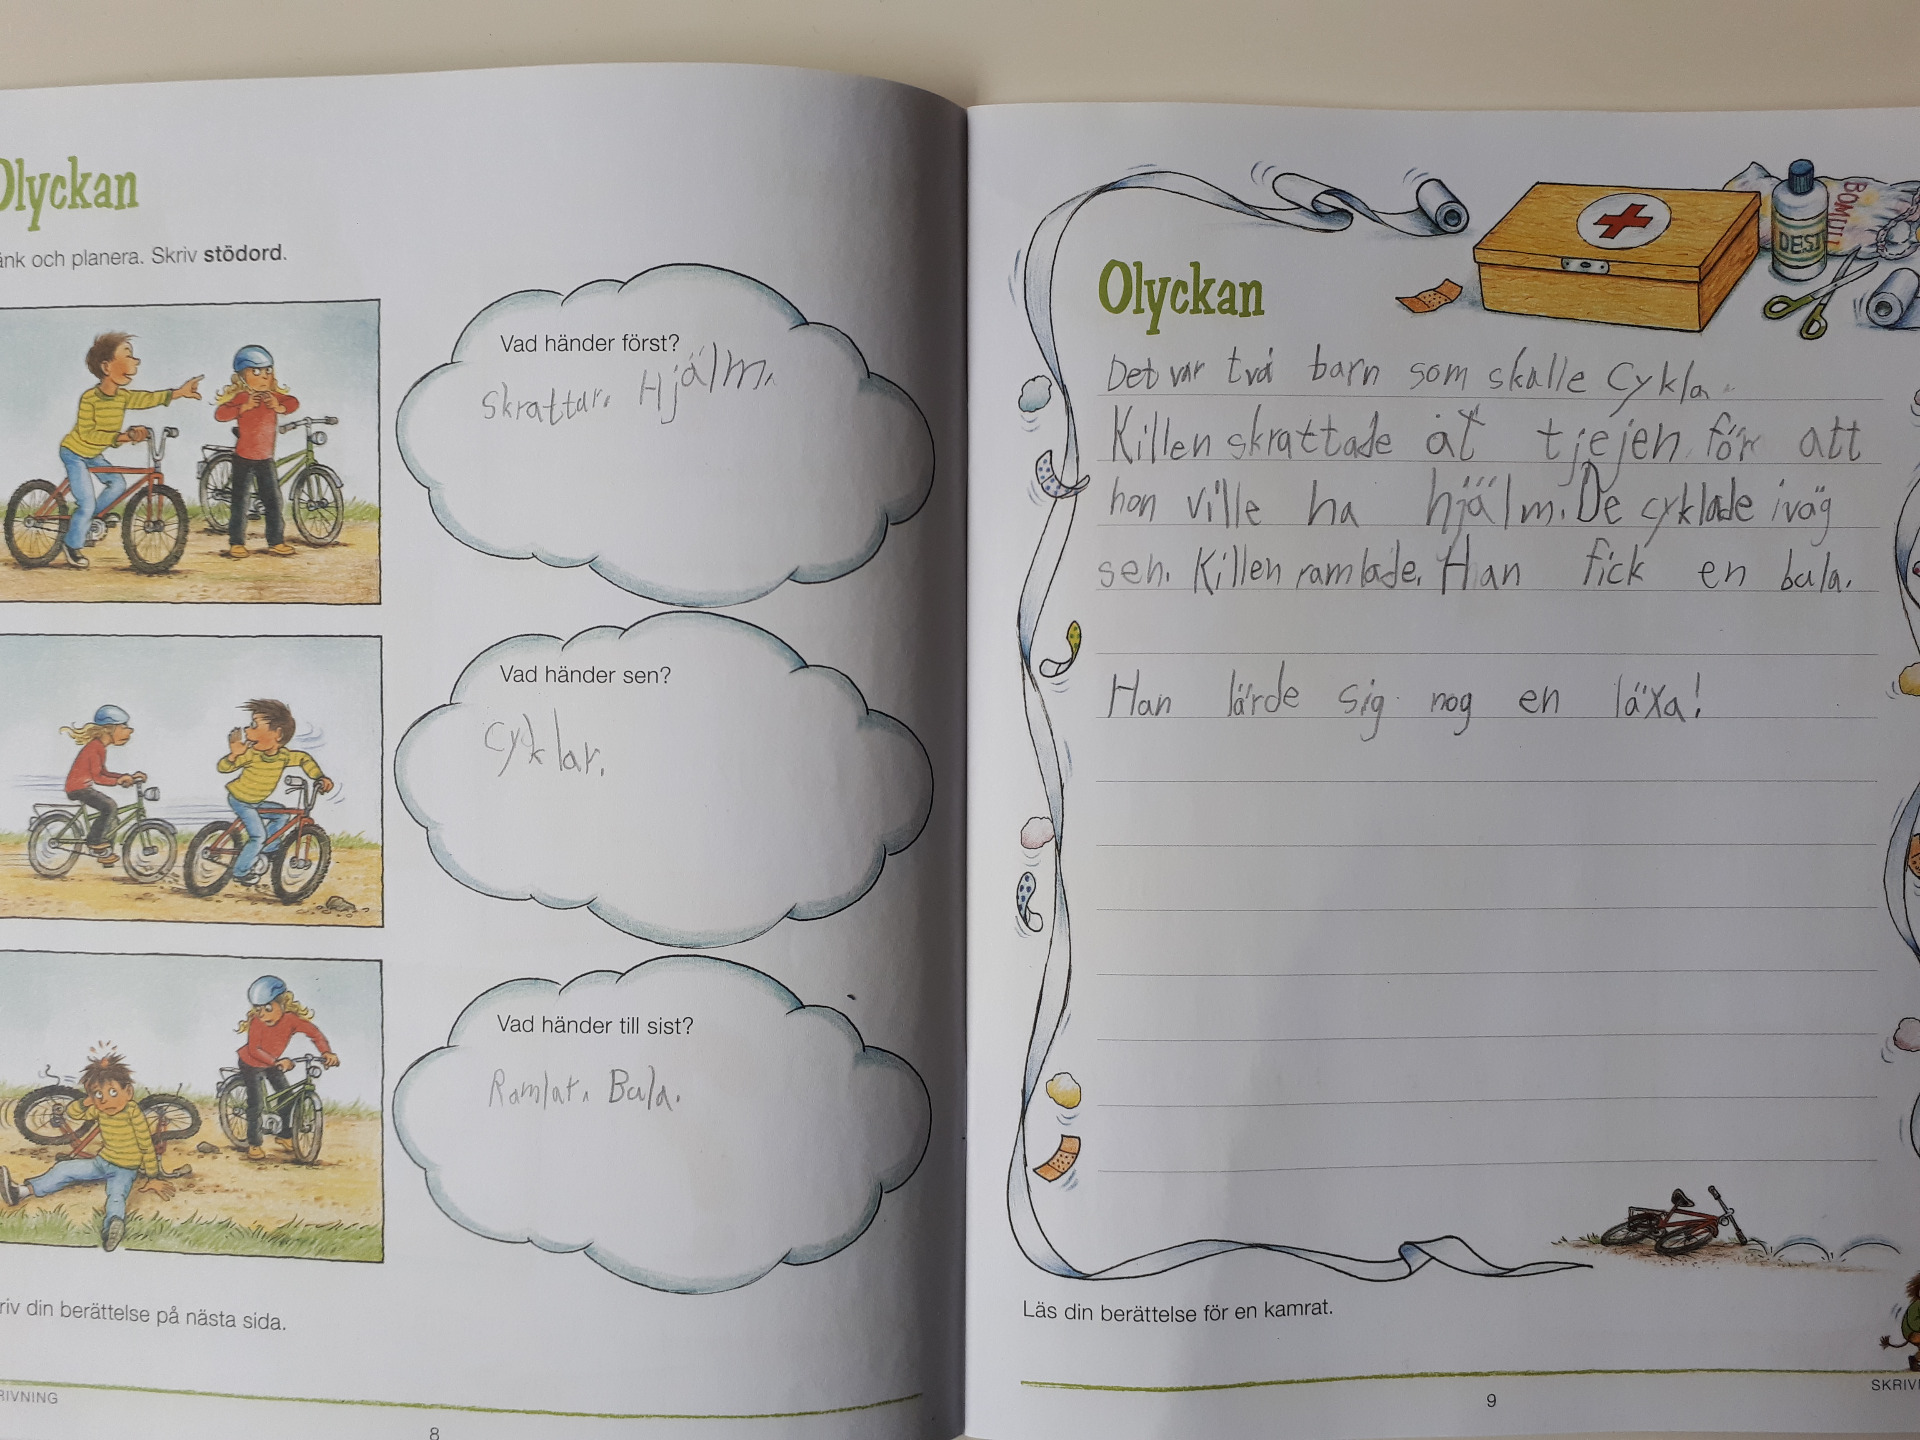 Olyckan
änk och planera. Skriv stödord.
Vad händer först?
Skrattar. Hjälm.
Vad händer sen?
Cyklar.
Vad händer till sist?
Ramlat. Bula.
riv din berättelse på nästa sida.
RIVNING
8
BOMULL
DESI
Olyckan
Det var två barn som skulle cykla.
Killen skrattade åt tjejen för att
hon ville ha hjälm. De cyklade iväg
sen. Killen ramlade. Han fick en bula.
Han lärde sig nog en läxa!
Läs din berättelse för en kamrat.
9
SKRIV